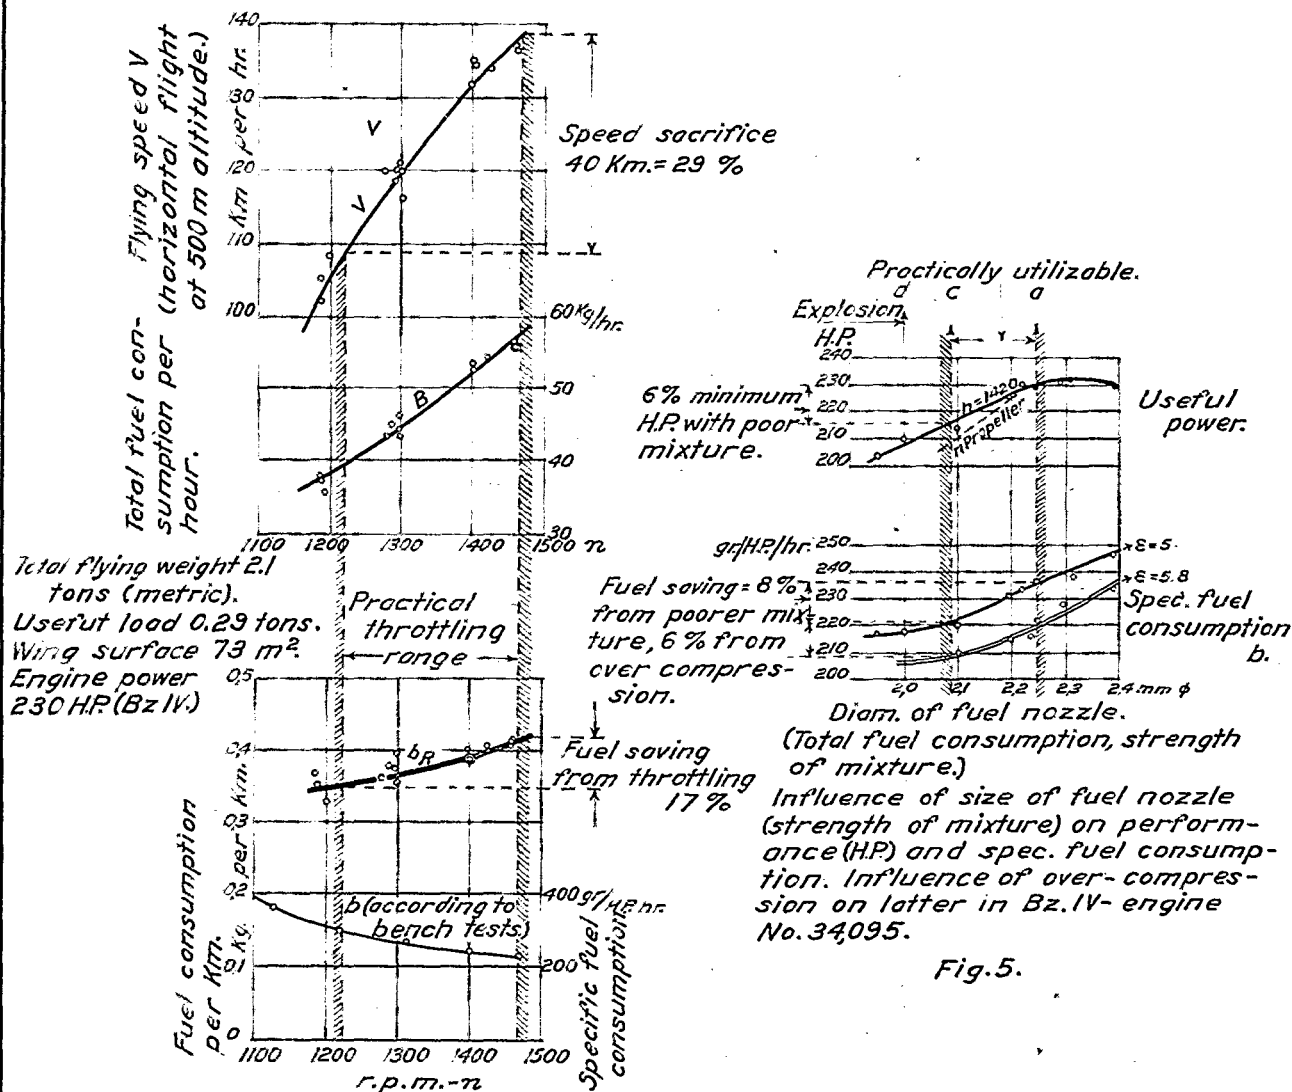 Flying speed V
(horizontal flight
at 500 m altitude.)
Km per hr.
140
130
120
110
100
V
V
Speed sacrifice
40 Km. = 29 %
Total fuel con-
sumption per
hour.
60 Kg/hr.
50
40
30
B
B
1100 1200 1300 1400 1500 n
Total flying weight 2.1
tons (metric).
Useful load 0.29 tons.
Wing surface 73 m².
Engine power
230 H.P. (Bz IV.)
Practical
throttling
range
Fuel consumption
per Km.
Kg. per Km.
0,5
0,4
0,3
0,2
0,1
0
bR
Fuel saving
from throttling
17 %
b (according to
bench tests)
400 gr/H.P. hr.
200
Specific fuel
consumption
1100 1200 1300 1400 1500
r.p.m. - n
Practically utilizable.
d c a
Explosion
H.P.
240
230
220
210
200
6% minimum
H.P. with poor
mixture.
n=1420
n Propeller
Useful
power.
gr/H.P./hr. 250
240
230
220
210
200
Fuel saving = 8 %
from poorer mix-
ture, 6 % from
over compres-
sion.
ε=5.
ε=5.8
Spec. fuel
consumption
b.
2,0 2,1 2,2 2,3 2,4 mm ϕ
Diam. of fuel nozzle.
(Total fuel consumption, strength
of mixture.)
Influence of size of fuel nozzle
(strength of mixture) on perform-
ance (H.P.) and spec. fuel consump-
tion. Influence of over-compres-
sion on latter in Bz. IV- engine
No. 34,095.
Fig. 5.